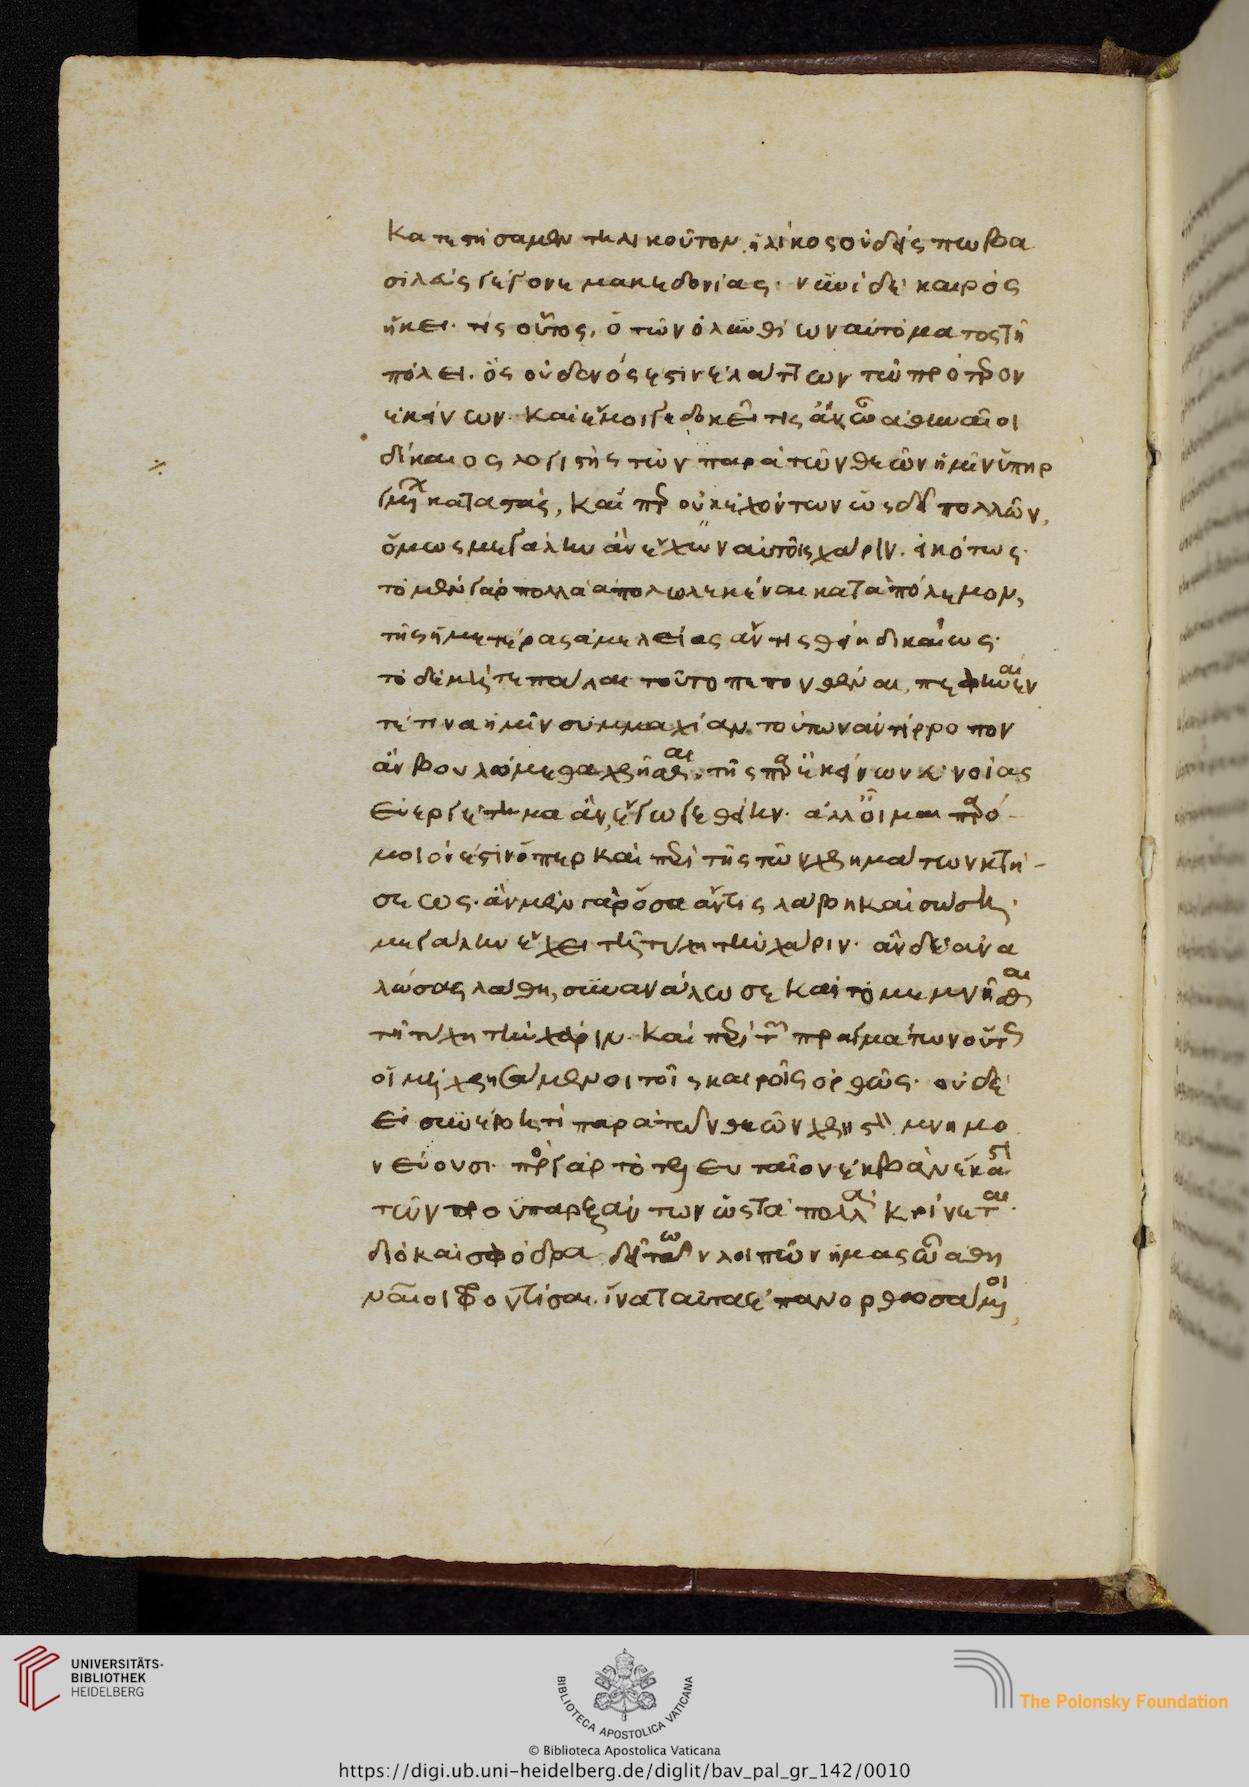 κατεστήσαμεν τηλικοῦτον ἡλίκος οὐδείς πω βα
σιλεὺς γέγονε μακεδονίας· νυνὶ δὲ καιρός
ἥκει· τίς οὗτος, ὁ τῶν ὀλυνθίων αὐτόματος τῆ
πόλει· ὃς οὐδενός ἐστιν ἐλάττων τῶν πρότερον
ἐκείνων· καὶ ἔμοιγε δοκεῖ τις ἂν ὦ ἀθηναῖοι
δίκαιος λογιστὴς τῶν παρὰ τῶν θεῶν ἡμῖν ὑπηρ
γμένων καταστάς, καίπερ οὐκ ἐχόντων ὡς δεῖ πολλῶν,
ὅμως μεγάλην ἂν ἔχειν αὐτοῖς χάριν. εἰκότως·
τὸ μὲν γὰρ πολλὰ ἀπολωλεκέναι κατὰ πόλεμον,
τῆς ἡμετέρας ἀμελείας ἄν τις θείη δικαίως·
τὸ δὲ μήτε πάλαι τοῦτο πεπονθέναι, πεφηνέναι
τέ τινα ἡμῖν συμμαχίαν τούτων ἀντίρροπον
ἂν βουλώμεθα χρῆσθαι, τῆς παρ' ἐκείνων εὐνοίας
εὐεργέτημα ἂν ἔγωγε θείην. ἀλλ' οἶμαι παρό-
μοιόν ἐστιν ὅπερ καὶ περὶ τῆς τῶν χρημάτων κτή-
σεως· ἂν μὲν γὰρ ὅσα ἄν τις λάβη καὶ σώση,
μεγάλην ἔχει τῆ τύχη τὴν χάριν· ἂν δὲ ἀνα
λώσας λάθη, συνανάλωσε καὶ τὸ μεμνῆσθαι
τῆ τύχη τὴν χάριν· καὶ περὶ τῶν πραγμάτων οὕτως
οἱ μὴ χρησάμενοι τοῖς καιροῖς ὀρθῶς· οὐδὲ
εἰ συνέβη τι παρὰ τῶν θεῶν χρηστὸν μνημο
νεύουσι· πρὸς γὰρ τὸ τελευταῖον ἐκβὰν ἕκαστον
τῶν προϋπαρξάντων ὡς τὰ πολλὰ κρίνεται·
διὸ καὶ σφόδρα δεῖ τῶν λοιπῶν ἡμᾶς ὦ ἀθη
ναῖοι φροντίσαι. ἵνα ταῦτα ἐπανορθωσάμενοι
UNIVERSITÄTS-
BIBLIOTHEK
HEIDELBERG
BIBLIOTECA APOSTOLICA VATICANA
The Polonsky Foundation
© Biblioteca Apostolica Vaticana
https://digi.ub.uni-heidelberg.de/diglit/bav_pal_gr_142/0010